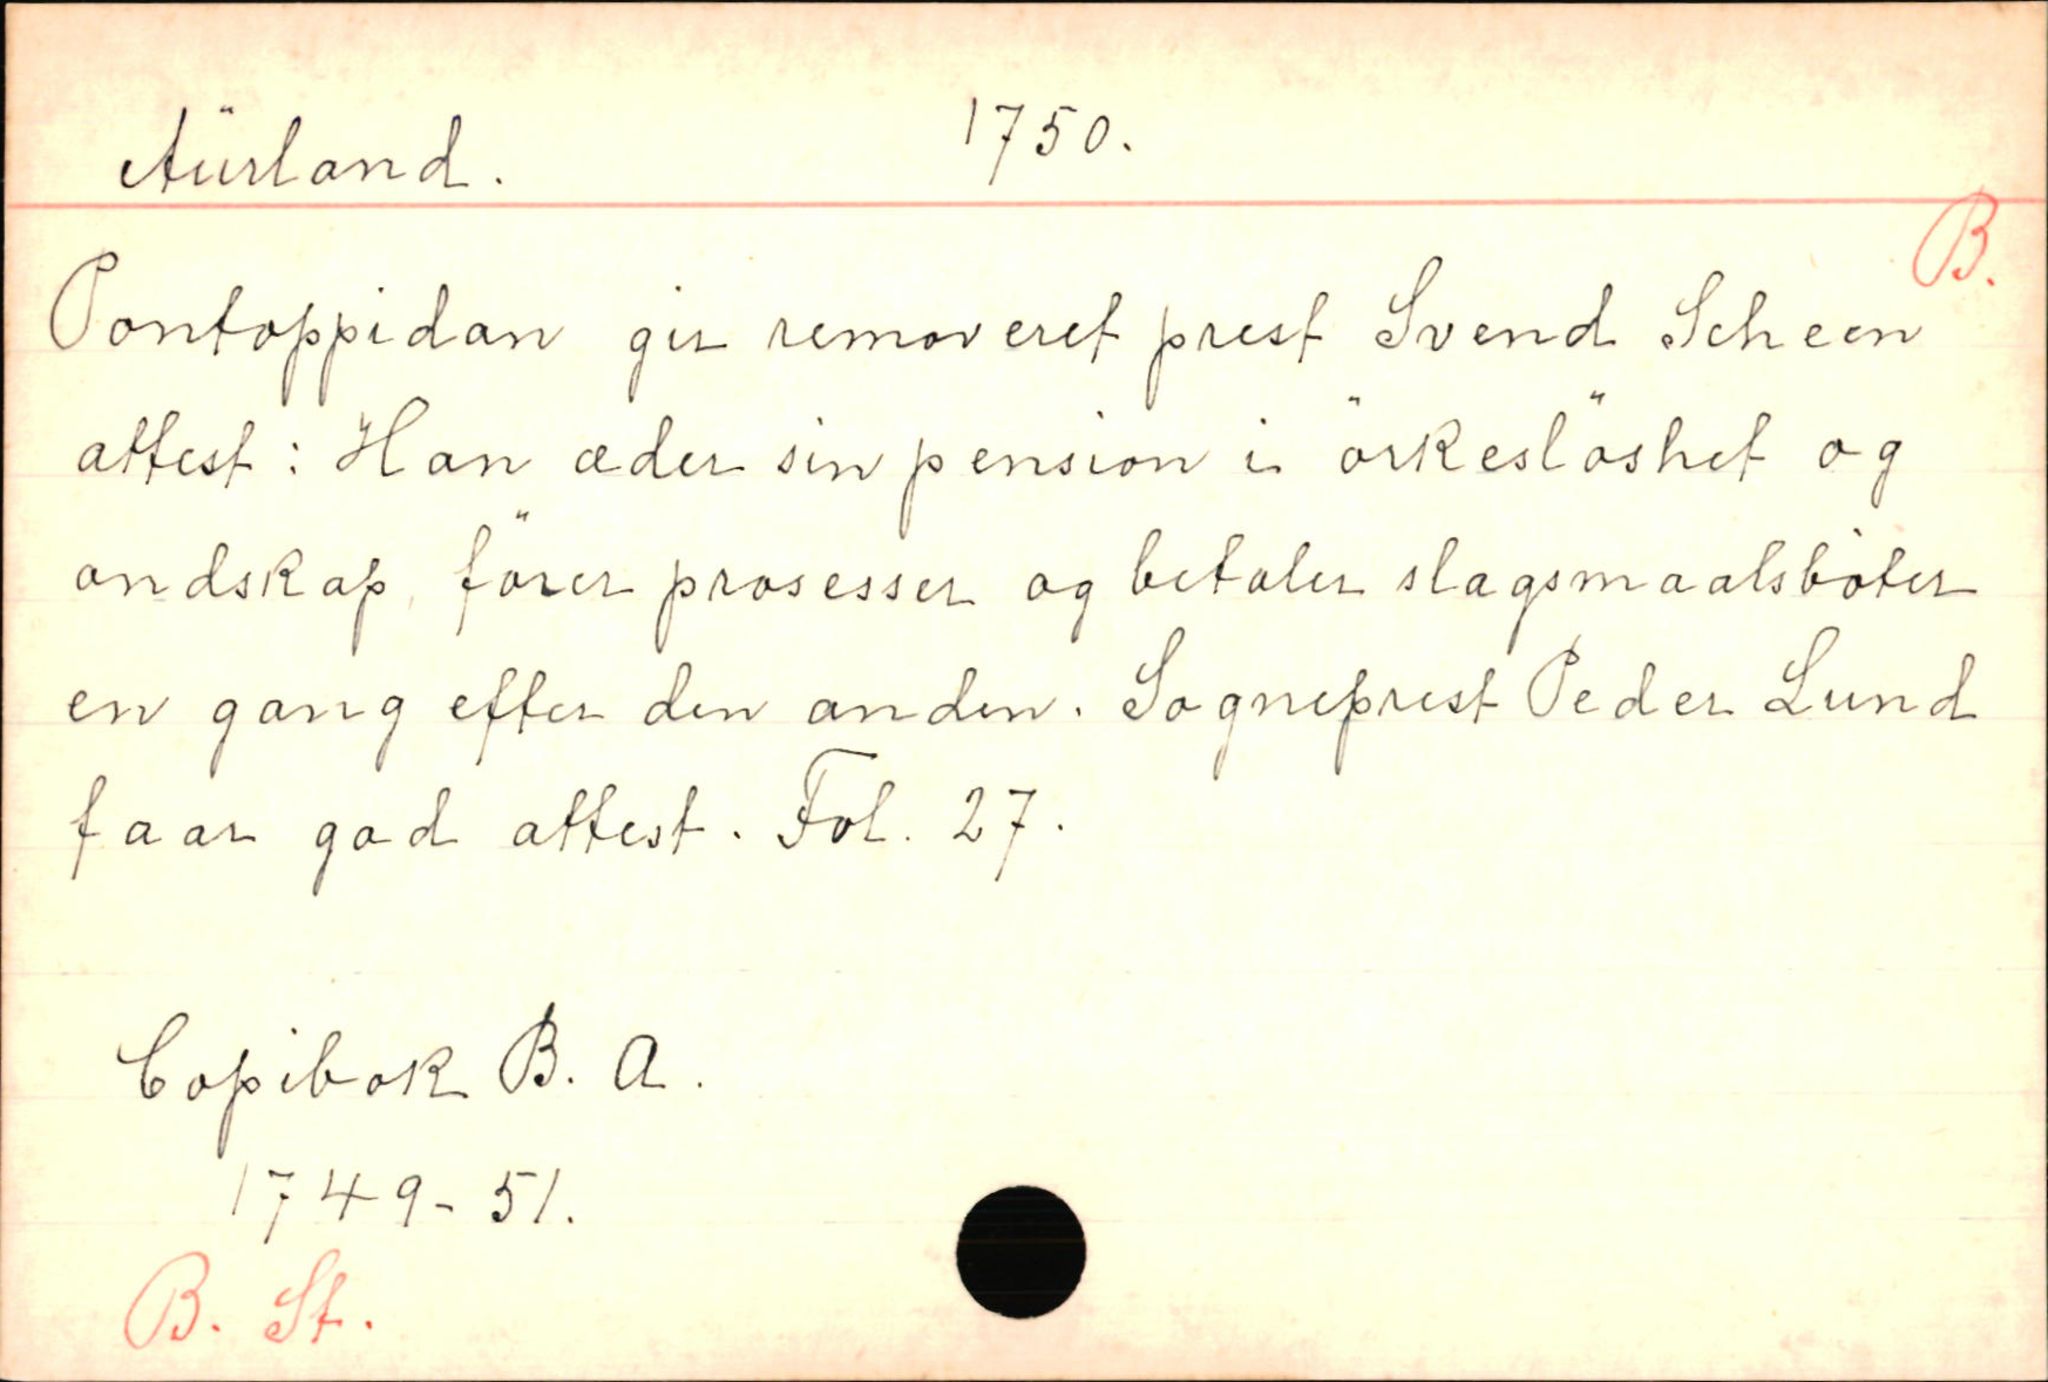 Aürland. 1750.
B.
Pontoppidan gir removeret prest Svend Scheen
attest: Han æder sin pension i örkeslöshet og
ondskap, förer prosesser og betaler slagsmaalsböter
en gang efter den anden. Sogneprest Peder Lund
faar god attest. Fol. 27.
Copibok B. A.
1749-51.
B. St.